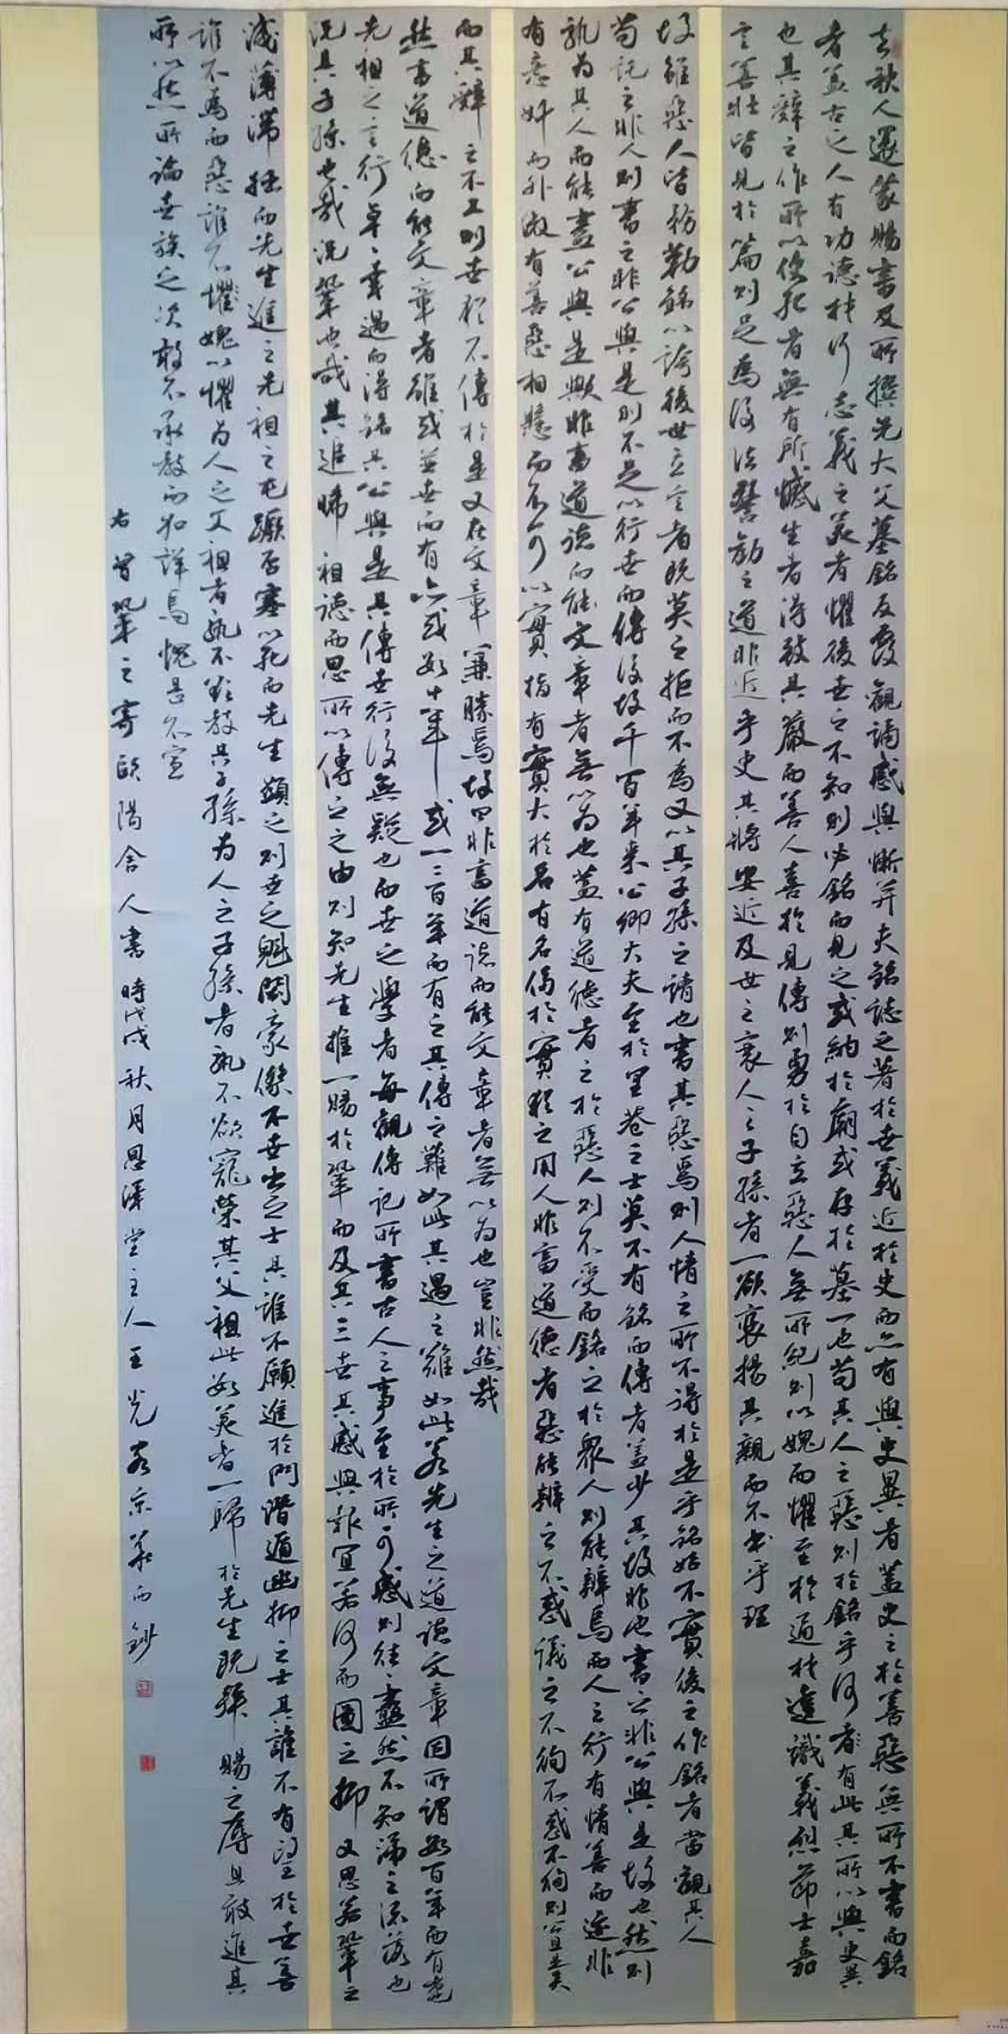 去秋人還蒙賜書及所撰先大父墓銘反覆觀誦感與慚并夫銘誌之著於世義近於史而亦有與史異者蓋史之於善惡無所不書而銘
者蓋古之人有功德材行志義之美者懼後世之不知則必銘而見之或納於廟或存於墓一也苟其人之惡則於銘乎何有此其所以與史異
也其辭之作所以使死者無有所憾生者得致其嚴而善人喜於見傳則勇於自立惡人無所紀則以媿而懼至於通材達識義烈節士嘉
言善狀皆見於篇則足為後法警勸之道非近乎史其將安近及世之衰人之子孫者一欲褒揚其親而不本乎理
故雖惡人皆務勒銘以誇後世立言者既莫之拒而不為又以其子孫之請也書其惡焉則人情之所不得於是乎銘始不實後之作銘者當觀其人
苟託之非人則書之非公與是則不足以行世而傳後故千百年來公卿大夫至於里巷之士莫不有銘而傳者蓋少其故非他書之非公與是故也然則
孰為其人而能盡公與是歟非畜道德而能文章者無以為也蓋有道德者之於惡人則不受而銘之於眾人則能辨焉而人之行有情善而迹非
有意奸而外淑有善惡相懸而不可以實指有實大於名有名侈於實猶之用人非畜道德者惡能辨之不惑議之不徇不惑不徇則公且是矣
而其辭之不工則世猶不傳於是又在文章兼勝焉故曰非畜道德而能文章者無以為也豈非然哉
然畜道德而能文章者雖或並世而有亦或數十年或一二百年而有之其傳之難如此其遇之難如此若先生之道德文章固所謂數百年而有者也
先祖之言行卓卓幸遇而得銘其公與是其傳世行後無疑也而世之學者每觀傳記所書古人之事至於所可感則往往衋然不知涕之流落也
況其子孫也哉況鞏也哉其追晞祖德而思所以傳之之由則知先生推一賜於鞏而及其三世其感與報宜若何而圖之抑又思若鞏之
淺薄滯拙而先生進之先祖之屯蹶否塞以死而先生顯之則世之魁閎豪傑不世出之士其誰不願進於門潛遁幽抑之士其誰不有望於世善
誰不為而惡誰不懼媿以懼為人之父祖者孰不欲教其子孫為人之子孫者孰不欲寵榮其父祖此數美者一歸於先生既拜賜之辱且敢進其
所以然所論世族之次敢不承教而加詳焉愧甚不宣
右曾鞏之寄歐陽舍人書時戊戌秋月恩澤堂主人王光宗華而鈔